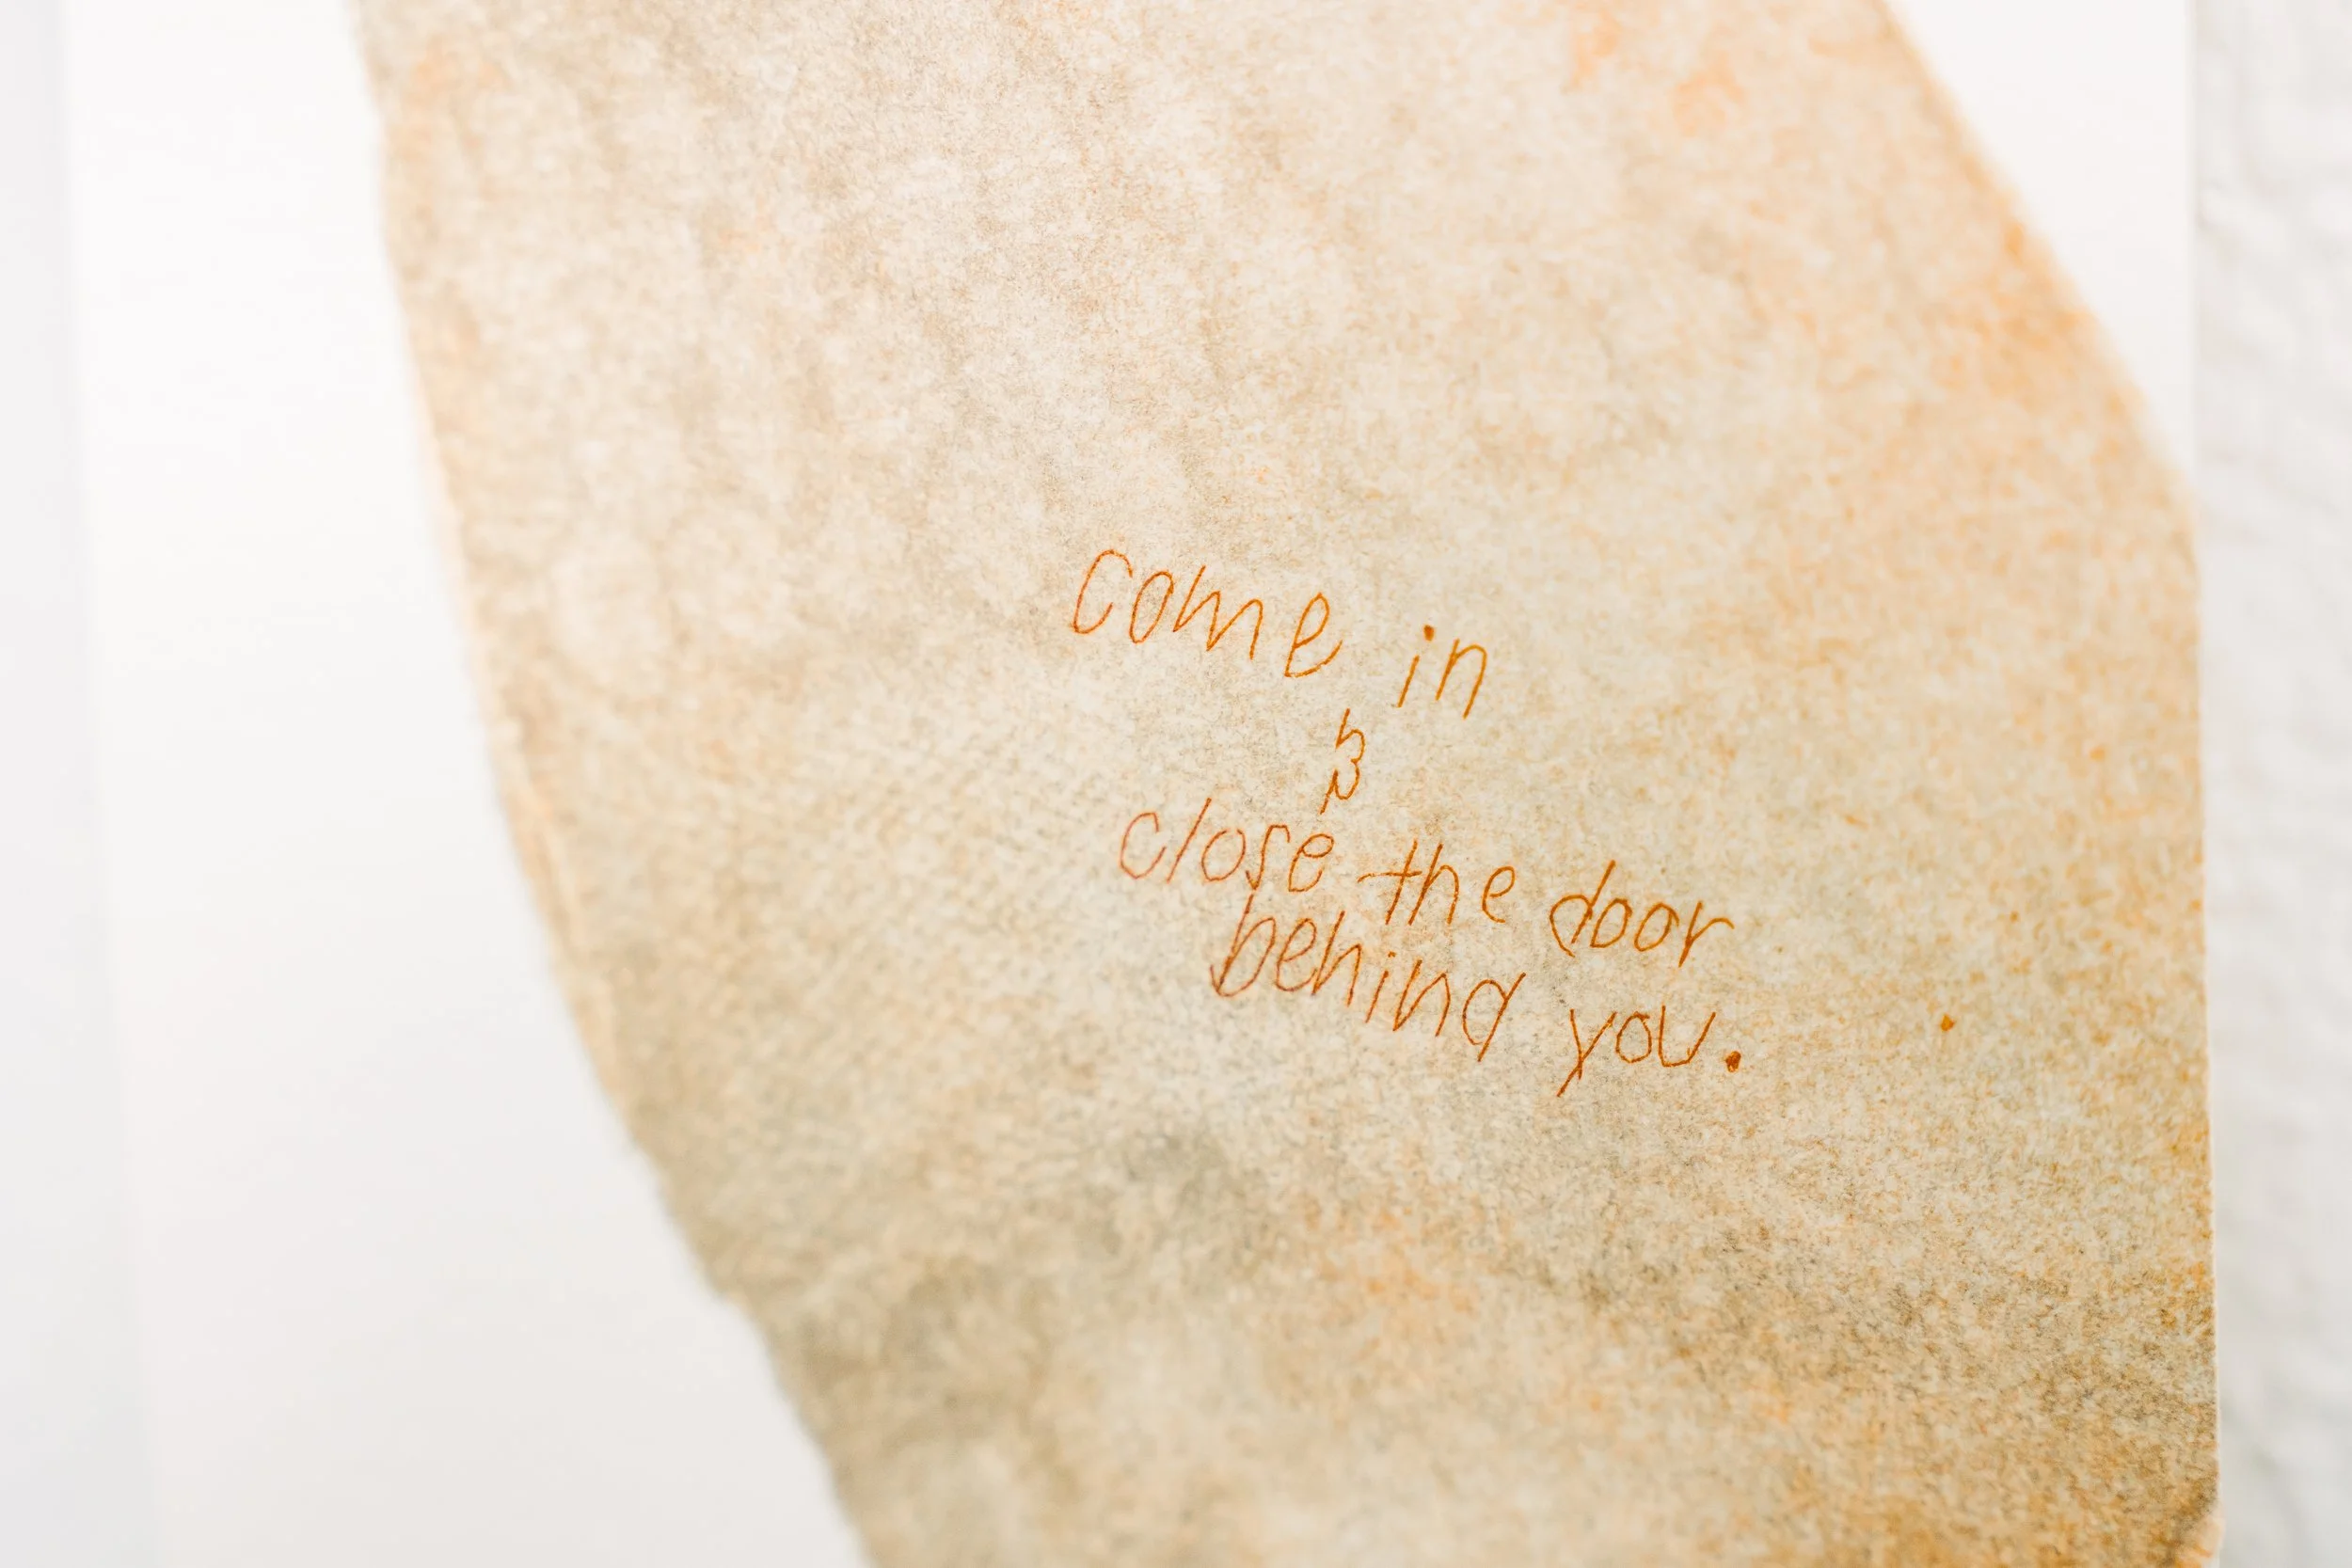 come in
&
close the door
behind you.